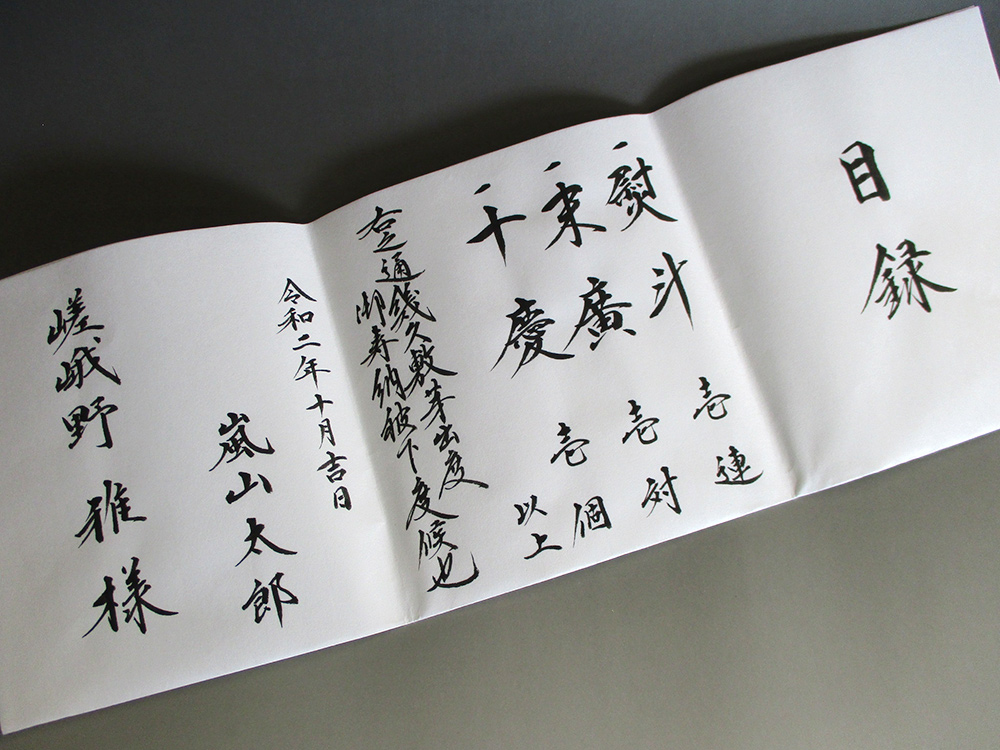 目録
一 熨斗 壱連
一 末廣 壱対
一 千慶 壱個
以上
右之通幾久敷芽出度
御寿納被下度候也
令和二年十月吉日
嵐山太郎
嵯峨野 雅 様